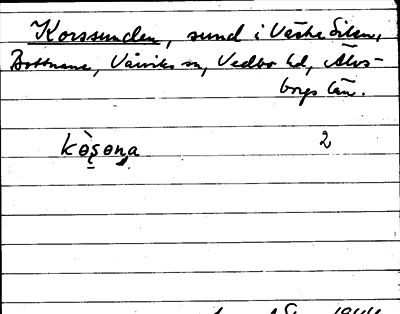 Korssunden, sund i Västra Silen,
Bottnane, Vårviks sn, Vedbo hd, Älvs-
borgs län.
kò̱ʂona 2